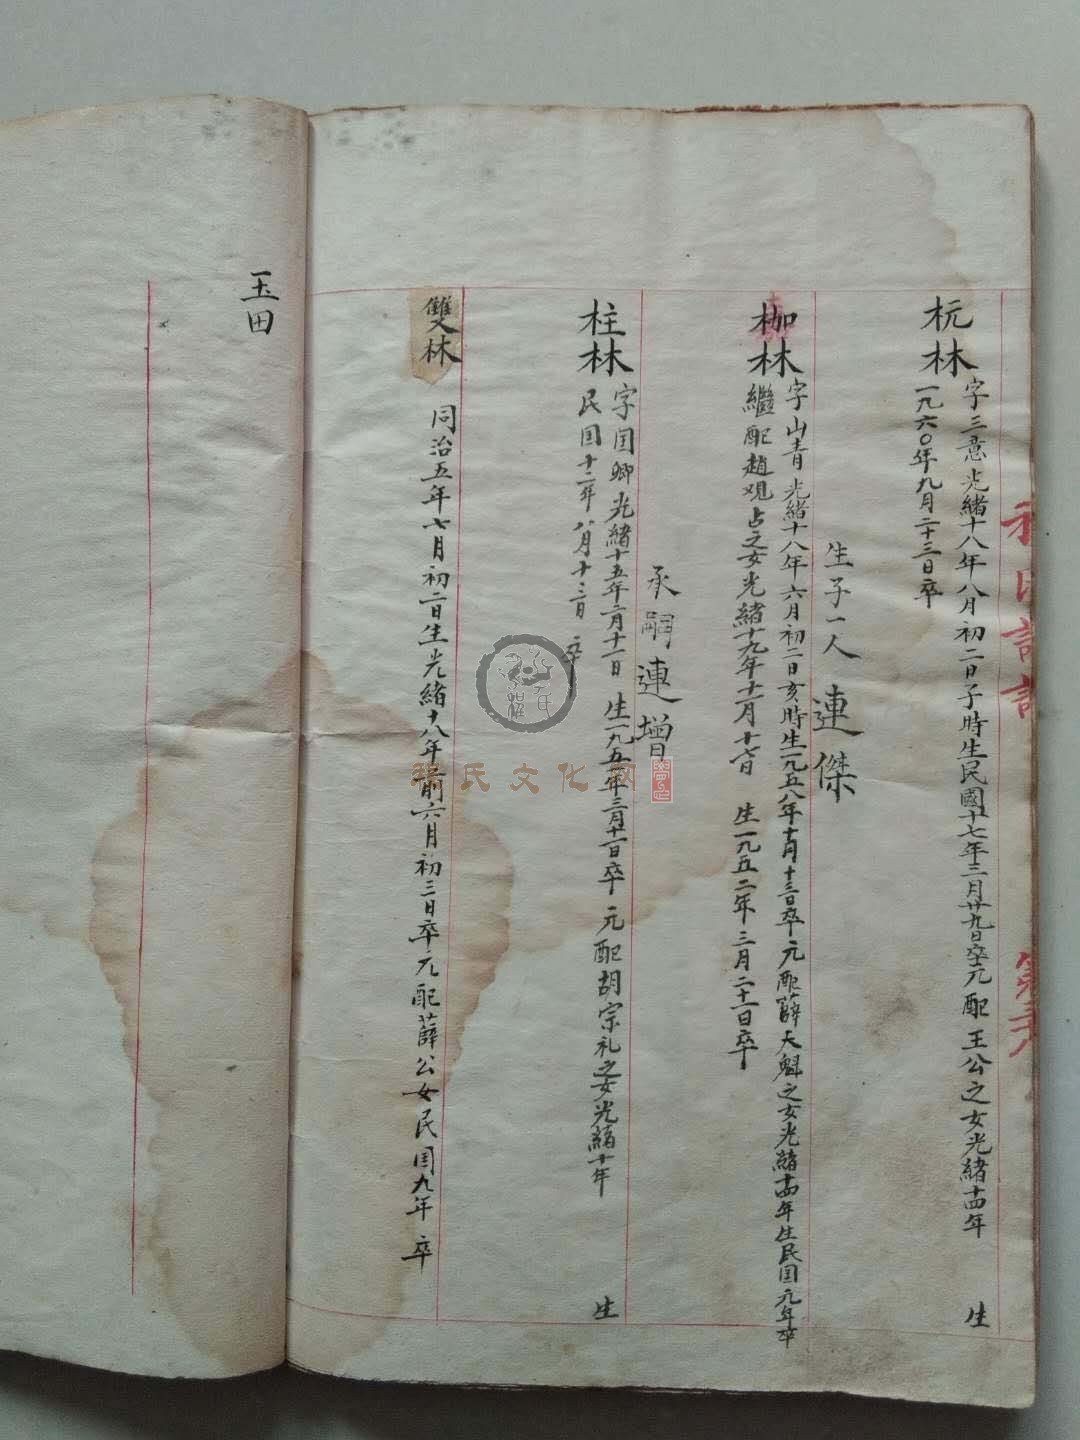 杬林
字三意光緒十八年八月初二日子時生民國十七年三月廿九日卒元配王公之女光緒十四年 生
一九六〇年九月二十三日卒
生子一人 連傑
枷林
字山青光緒十八年六月初二日亥時生一九五八年十月十三日卒元配薛大魁之女光緒十四年生民国元年卒
繼配趙观占之女光緒十九年十一月十七日 生一九五二年三月二十一日卒
承嗣連增
柱林
字国卿光緒十五年二月十一日 生一九五一年三月十一日卒 元配胡宗礼之女光緒十年 生
民国十二年八月十三日 卒
雙林
同治五年七月初二日生光緒十八年前六月初三日卒元配薛公女民国九年 卒
玉田
程氏文化网